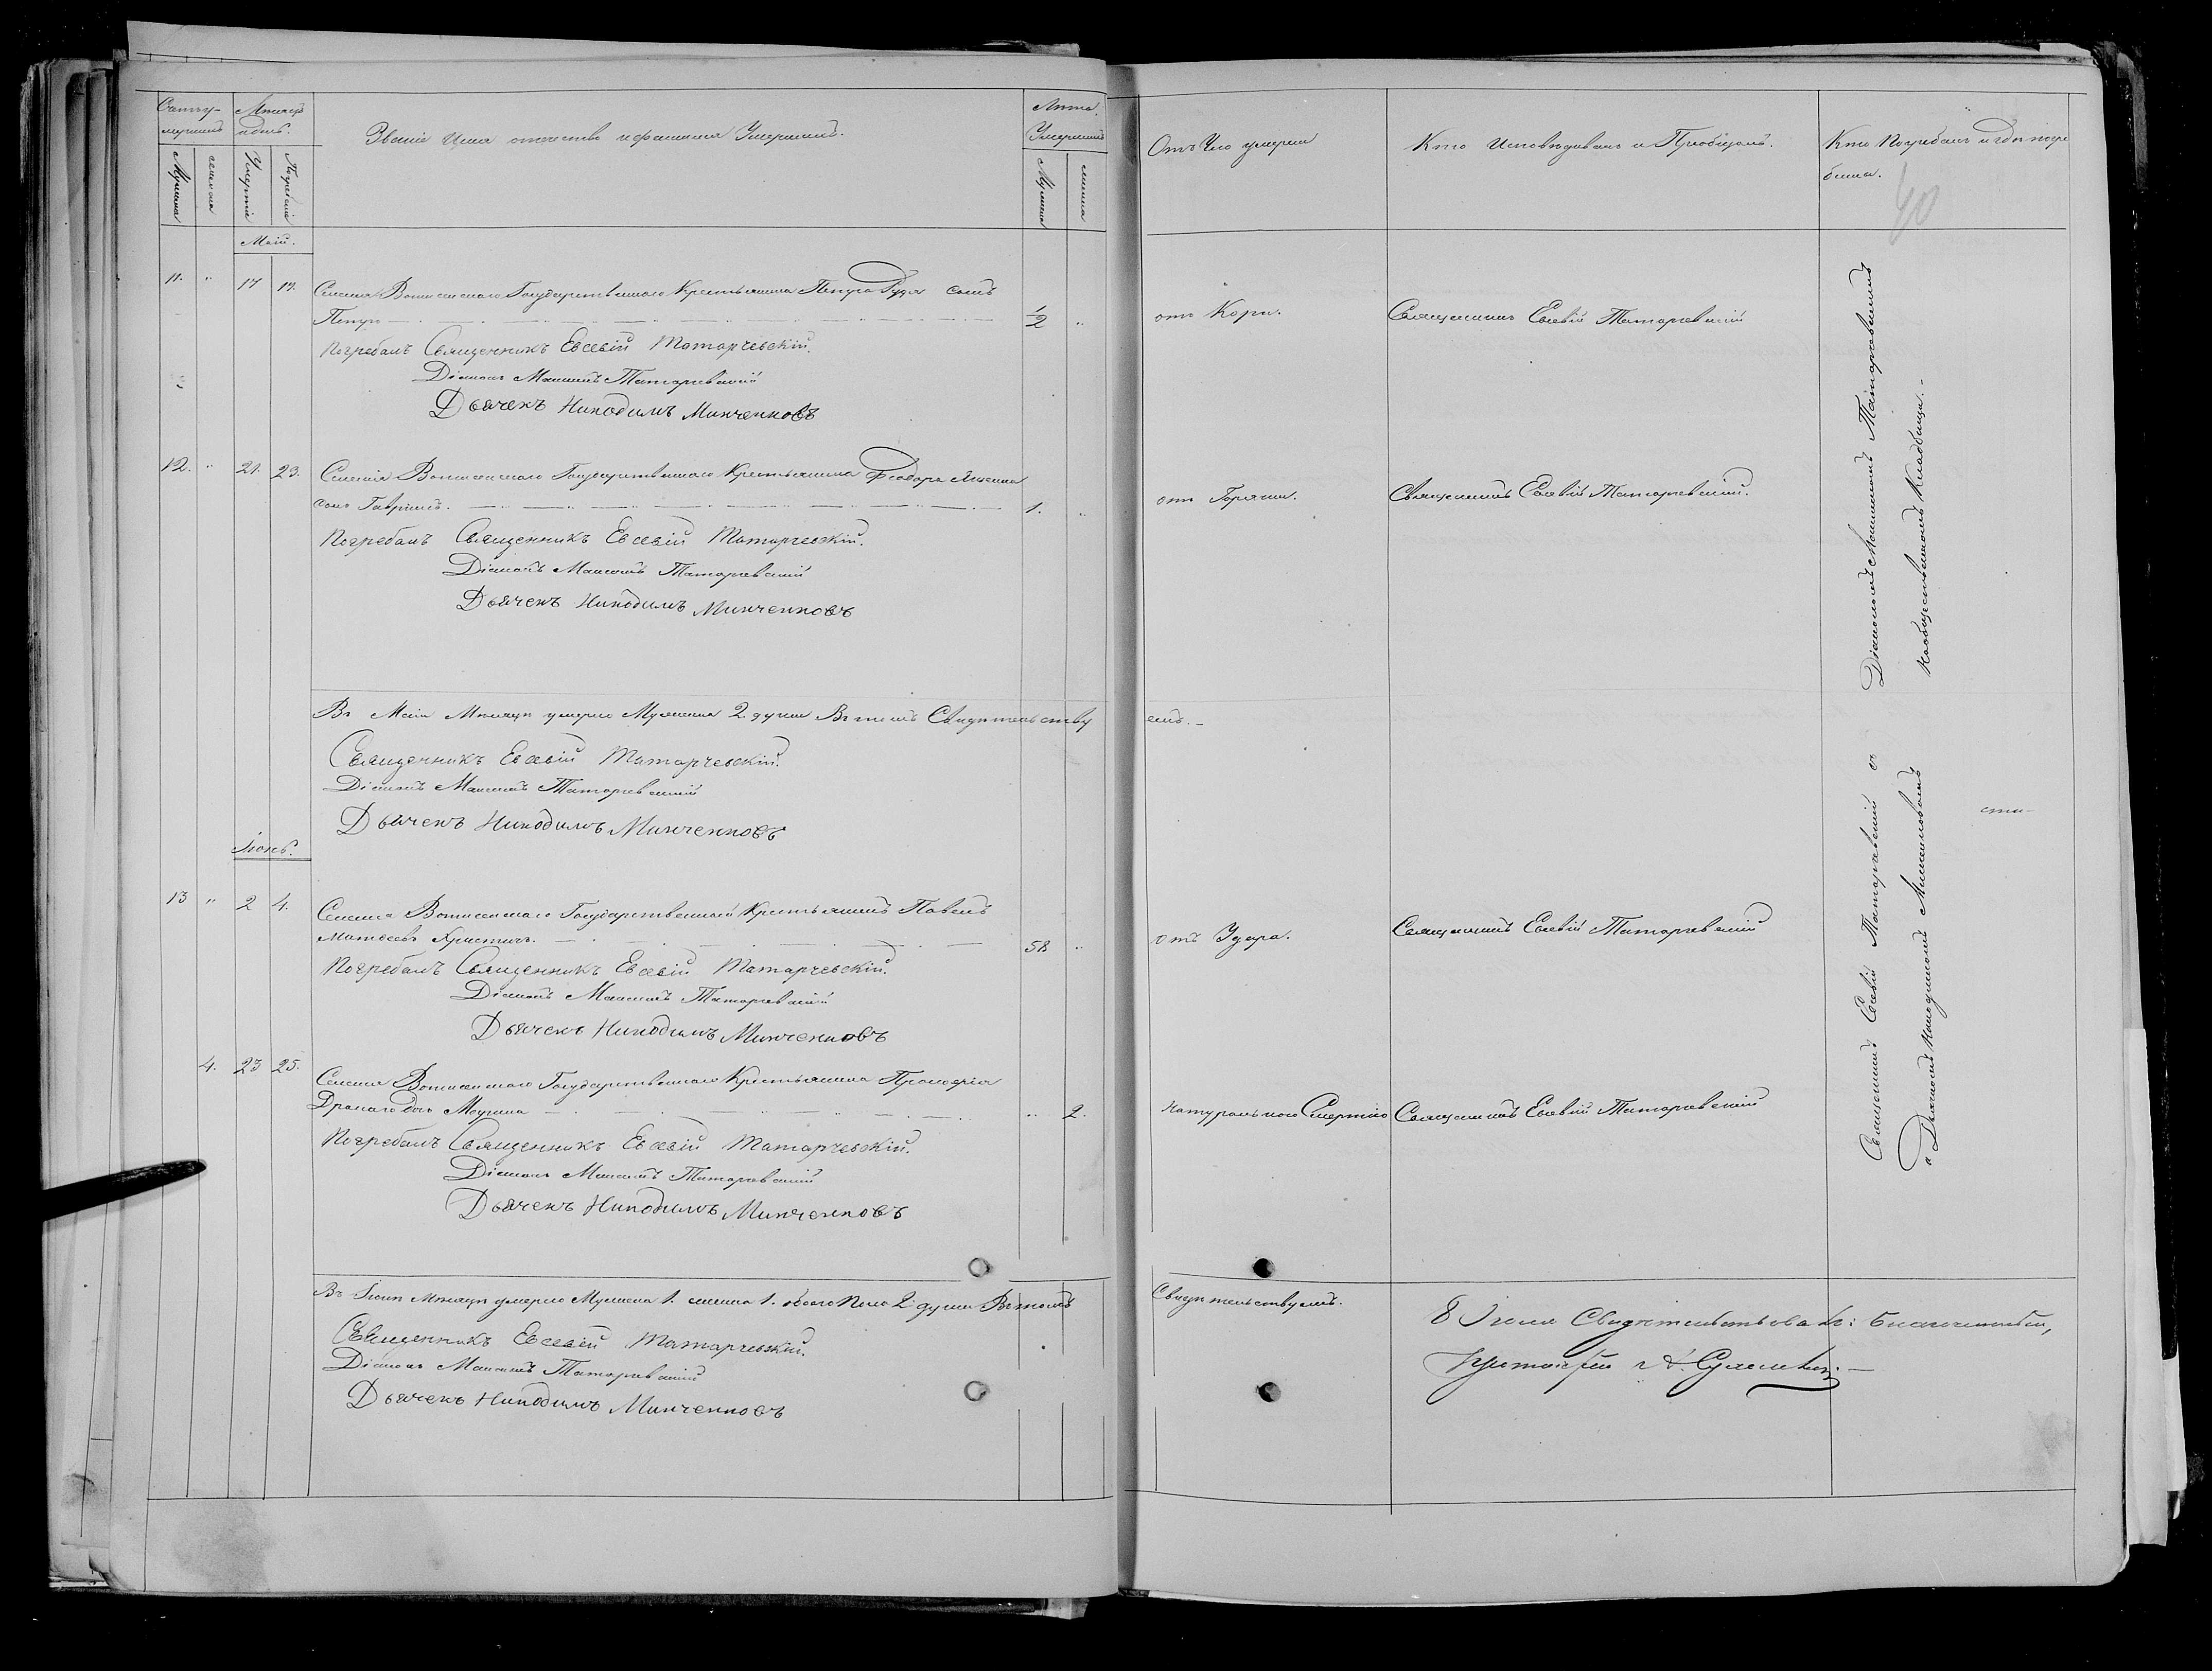 Счетъ умершихъ
Мѣсяцъ и день.
Званіе Имя отчество и фамилия Умершихъ.
Лѣта Умершихъ
Мужеска
женска
Умертія
Погребенія
Мужеска
женска
Отъ Чего умерли
Кто Исповѣдывалъ и Пріобщалъ.
Кто Погребалъ и гдѣ погре
бены.
40
Май.
11. " 17 19. Селенія Государственнаго Крестьянина Петра сынъ
Петръ 1/2 "
отъ Кори.
Священникъ Евсевій Татарчевскій
Погребалъ Священникъ Евсевій Татарчевскій.
Діаконъ Максимъ Татарчевскій
Дьячекъ Никодимъ Минченковъ
12. " 21. 23. Селенія Государственнаго Крестьянина Феодора
сынъ Гавріилъ. 1. "
отъ Горячки.
Священникъ Евсевій Татарчевскій.
Погребалъ Священникъ Евсевій Татарчевскій.
Діаконъ Максимъ Татарчевскій
Дьячекъ Никодимъ Минченковъ
Въ Маіи Мѣсяцѣ умерло Мужеска 2 души Въ чемъ Свидѣтельству
емъ.
Священникъ Евсевій Татарчевскій.
Діаконъ Максимъ Татарчевскій
Дьячекъ Никодимъ Минченковъ
Іюнь.
13 " 2 4. Селенія Государственный Крестьянинъ Павелъ
Матвеевъ 58 "
отъ Удара.
Священникъ Евсевій Татарчевскій
Погребалъ Священникъ Евсевій Татарчевскій.
Діаконъ Максимъ Татарчевскій
Дьячекъ Никодимъ Минченковъ
4. 23 25. Селенія Государственнаго Крестьянина
дочь " 2.
Натуральною Смертію
Священникъ Евсевій Татарчевскій
Погребалъ Священникъ Евсевій Татарчевскій.
Діаконъ Максимъ Татарчевскій
Дьячекъ Никодимъ Минченковъ
Священникъ Евсевій Татарчевскій съ Діакономъ Максимомъ Татарчевскимъ
и Дьячкомъ Никодимомъ Минченковымъ на общественномъ Кладбищи.
Въ Іюнѣ Мѣсяцѣ умерло Мужеска 1. женска 1. обоего Пола 2 души Въ томъ
Свидѣтельствуемъ.
Священникъ Евсевій Татарчевскій.
Діаконъ Максимъ Татарчевскій
Дьячекъ Никодимъ Минченковъ
8 Іюля Свидетельствовалъ: Благочинный,